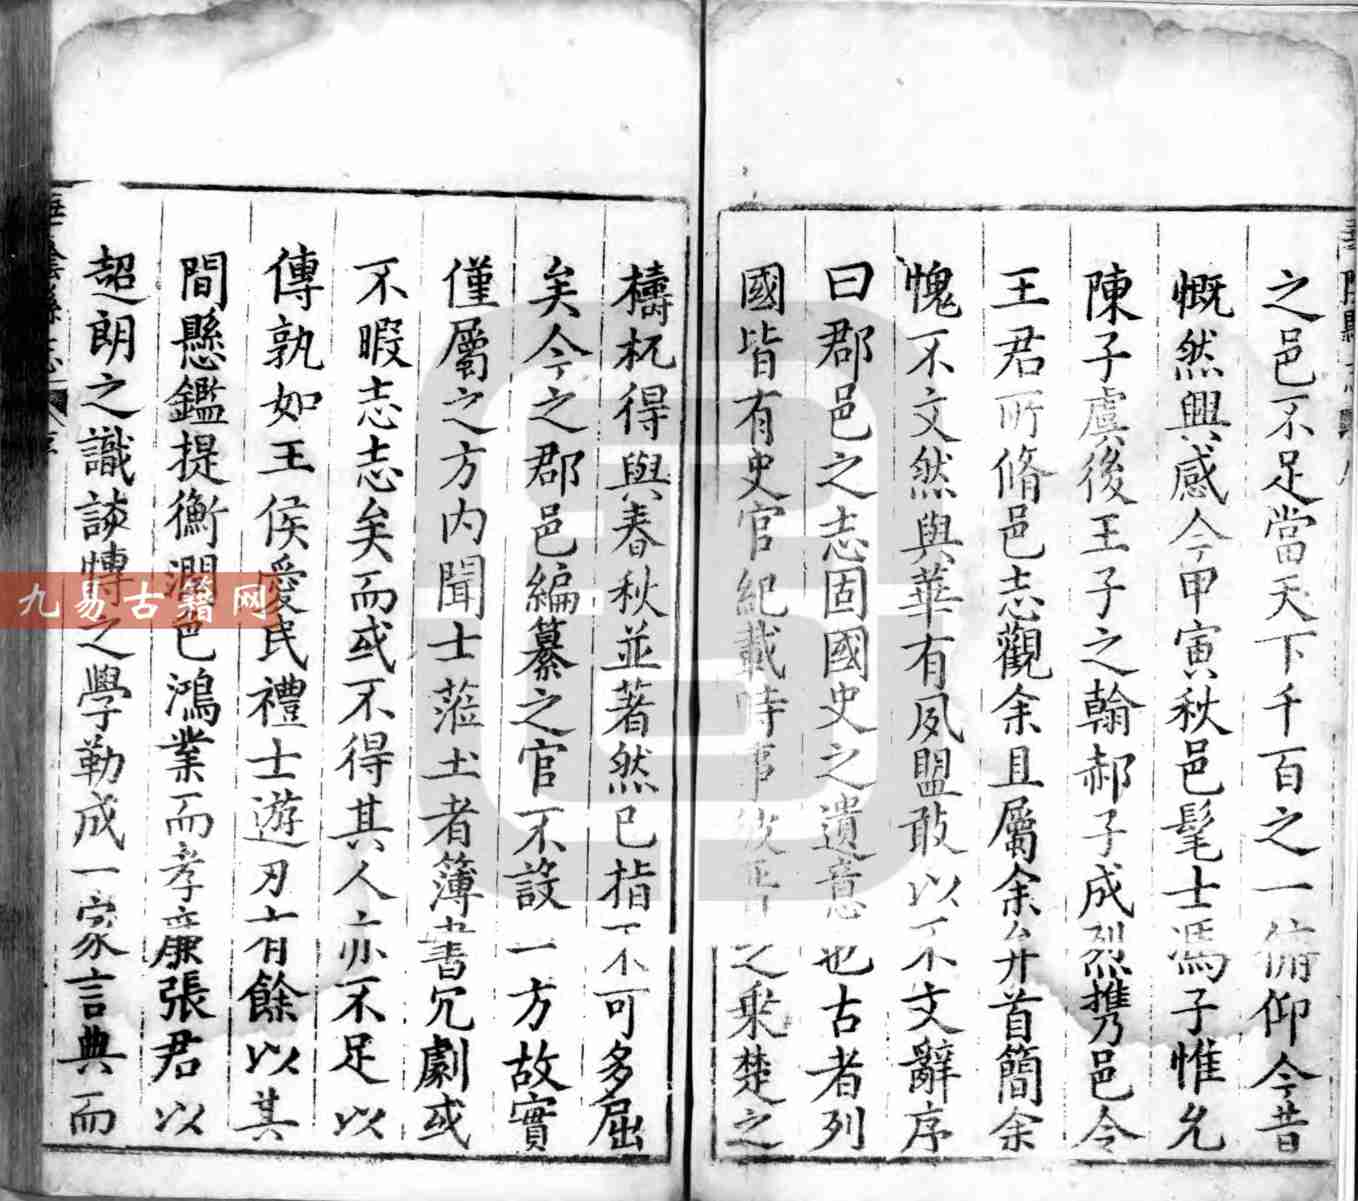 之邑不足當天下千百之一俯仰今昔
慨然興感今甲寅秋邑髦士馮子惟允
陳子虞後王子之翰郝子成烈携邑令
王君所脩邑志觀余且屬余弁首簡余
愧不文然與華有夙盟敢以不文辭序
曰郡邑之志固國史之遺意也古者列
國皆有史官紀載時事 之乗楚之
檮杌得與春秋並著然已指不可多屈
矣今之郡邑編纂之官不設一方故實
僅屬之方内聞士蒞土者簿書冗劇或
不暇志志矣而或不得其人亦不足以
傳孰如王侯愛民禮士遊刃有餘以其
間懸鑑提衡潤色鴻業而孝廉張君以
超朗之識談慱之學勒成一家言典而
九易古籍网